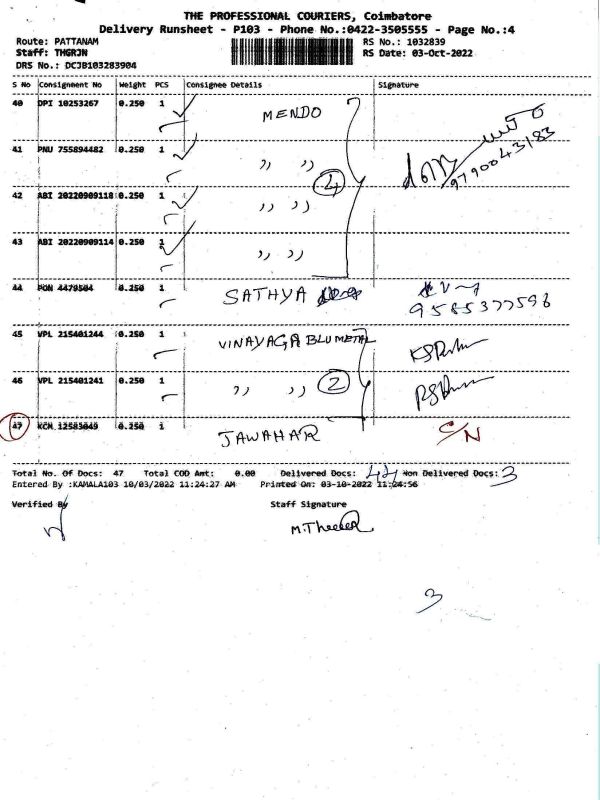 THE PROFESSIONAL COURIERS, Coimbatore
Delivery Runsheet - P103 - Phone No.:0422-3505555 - Page No.:4
Route: PATTANAM RS No.: 1032839
Staff: THGRJN RS Date: 03-Oct-2022
DRS No.: DCJB103283904
S No Consignment No Weight PCS Consignee Details Signature
40 DPI 10253267 0.250 1 MENDO
41 PNU 755894482 0.250 1 ,, ,,
4 9790043183
42 ABI 20220909118 0.250 1 ,, ,,
43 ABI 20220909114 0.250 1 ,, ,,
44 PON 4479504 0.250 1 SATHYA
9585377596
45 VPL 215401244 0.250 1 VINAYAGA BLUMETAL
46 VPL 215401241 0.250 1 ,, ,, 2
47 KCM 12583049 0.250 1 JAWAHAR C/N
Total No. Of Docs: 47 Total COD Amt: 0.00 Delivered Docs: 44 Non Delivered Docs: 3
Entered By :KAMALA103 10/03/2022 11:24:27 AM Printed On: 03-10-2022 11:24:56
Verified By Staff Signature
3